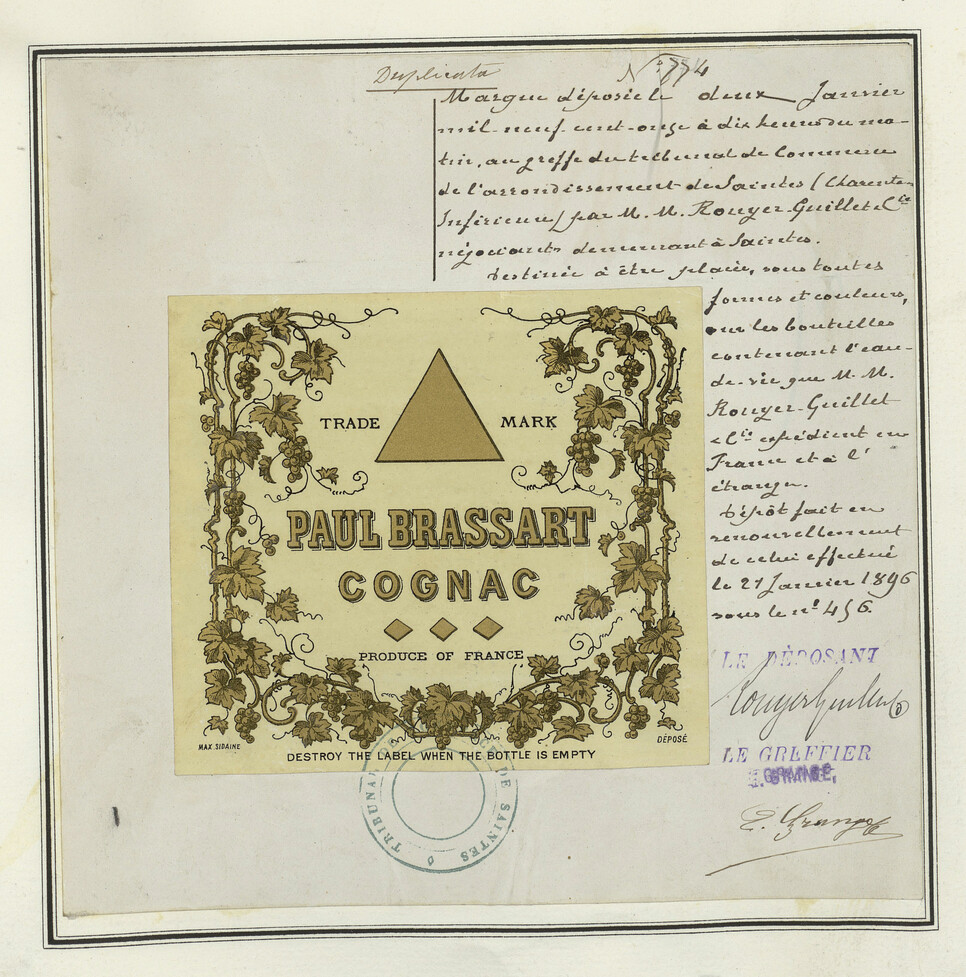 Duplicata
N° 774
Marque déposée le deux Janvier
mil-neuf-cent-onze à dix heures du ma-
tin, au greffe du tribunal de Commerce
de l'arrondissement de Saintes (Charente
Inférieure) par M. M. Rouyer-Guillet & Cie
négociants demeurant à Saintes.
Destinée à être placée, sous toutes
formes et couleurs,
sur les bouteilles
contenant l'eau-
de-vie que M. M.
Rouyer-Guillet
& Cie expédient en
France et à l'
étranger.
Dépôt fait en
renouvellement
de celui effectué
le 21 Janvier 1896
sous le n° 456
TRADE MARK
PAUL BRASSART
COGNAC
PRODUCE OF FRANCE
MAX. SIDAINE
DÉPOSÉ
DESTROY THE LABEL WHEN THE BOTTLE IS EMPTY
LE DÉPOSANT
Rouyer Guillet
LE GREFFIER
E. GRANGE.
E. Grange
TRIBUNAL DE SAINTES